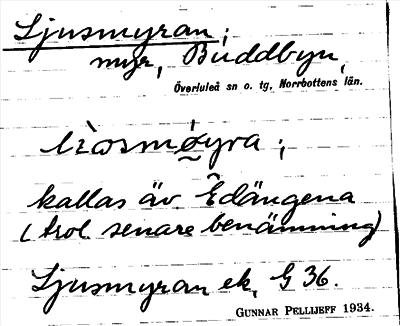 Ljusmyran;
myr, Buddbyn,
Överluleå sn o. tg, Norrbottens län.
kallas äv. Edängena
(trol. senare benämning)
Ljusmyran ek. G 36.
GUNNAR PELLIJEFF 1934.